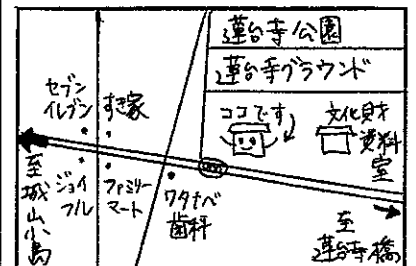 蓮台寺公園
蓮台寺グラウンド
ココです
文化財
資料
室
セブン
イレブン
すき家
ジョイ
フル
ファミリー
マート
ワタナベ
歯科
至城山小島
至
蓮台寺橋